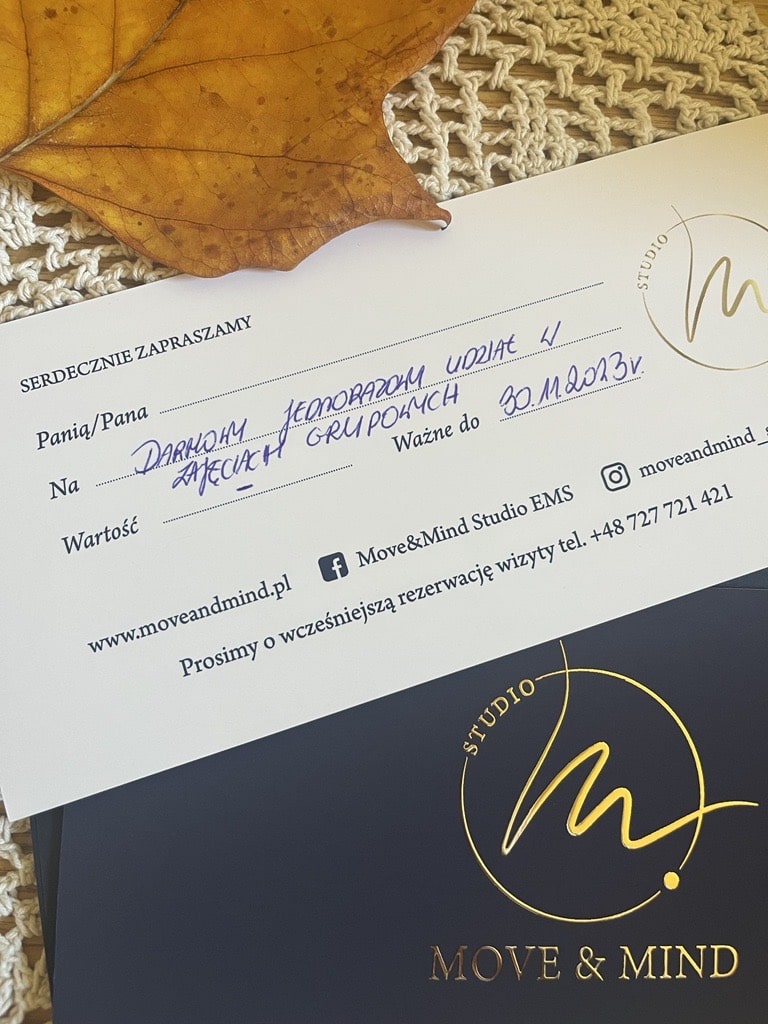 STUDIO
SERDECZNIE ZAPRASZAMY
Panią/Pana
Na DARMOWY JEDNORAZOWY UDZIAŁ W
ZAJĘCIACH GRUPOWYCH
Ważne do 30.11.2023r.
Wartość
www.moveandmind.pl
Move&Mind Studio EMS
moveandmind_s
Prosimy o wcześniejszą rezerwację wizyty tel. +48 727 721 421
STUDIO
m
MOVE & MIND